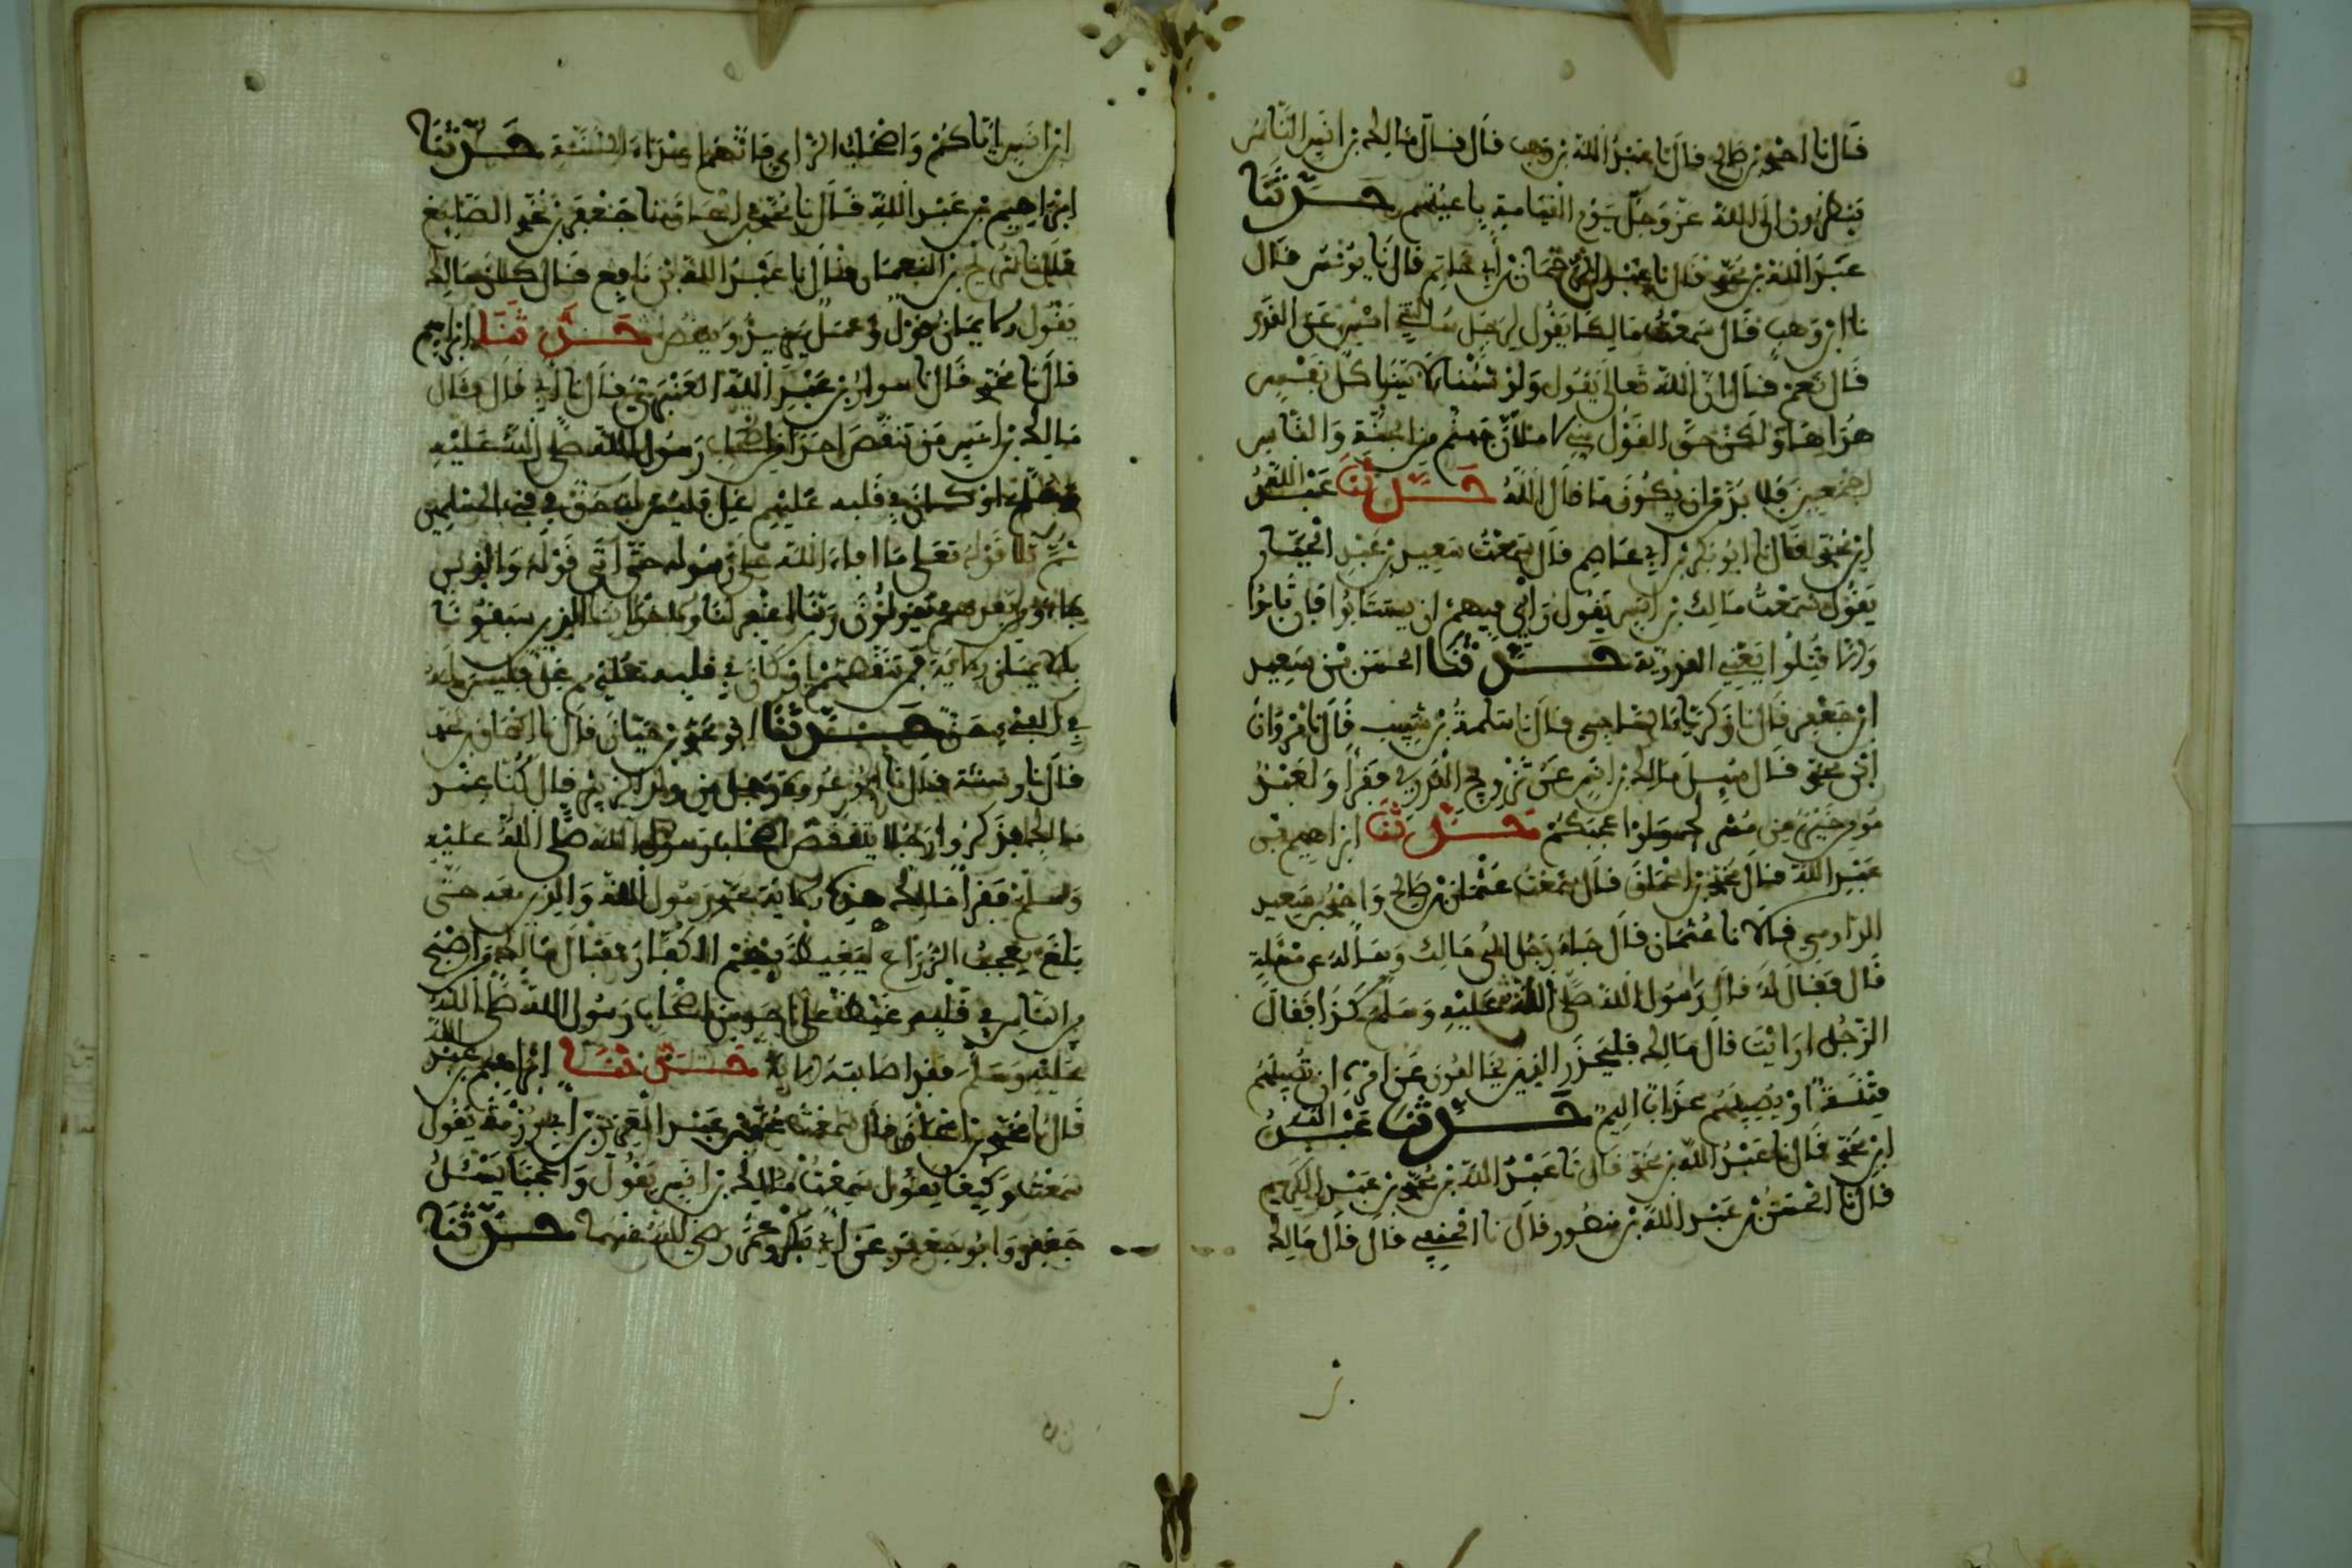 قال نا احمد بن صالح قال نا عبد الله بن وهب قال قال مالك بن انس الناس
ينظرون الى الله عز وجل يوم القيامة باعينهم حدثنا
عبد الله بن محمد قال نا عبد الرحمان بن ابي حاتم قال نا يونس قال
نا ابن وهب قال سمعت مالكا يقول لرجل سالتني امس عن القدر
قال نعم قال ان الله تعالى يقول ولو شئنا لاتينا كل نفس
هداها ولكن حق القول مني لاملان جهنم من الجنة والناس
اجمعين فلا بد من ان يكون ما قال الله حدثنا عبد الله
ابن محمد قال نا ابو بكر بن ابي عاصم قال سمعت سعيد بن عبد الجبار
يقول سمعت مالك بن انس يقول رايي فيهم ان يستتابوا فان تابوا
والا قتلوا يعني القدرية حدثنا الحسن بن سعيد
ابن جعفر قال نا زكرياء الساجي قال نا سلمة بن شبيب قال نا مروان
ابن محمد قال سئل مالك بن انس عن تزويج القدري فقرا ولعبد
مومن خير من مشرك ولو اعجبكم حدثنا ابراهيم بن
عبد الله قال محمد بن اسحاق قال سمعت عثمان بن صالح واحمد بن سعيد
الدارمي قالا نا عثمان قال جاء رجل الى مالك وساله عن مسالة
قال فقال له قال رسول الله صلى الله عليه وسلم كذا فقال
الرجل ارايت قال مالك فليحذر الذين يخالفون عن امره ان تصيبهم
فتنة او يصيبهم عذاب اليم حدثنا عبد الله
ابن محمد قال نا عبد الله بن محمد قال نا عبد الله بن محمد بن عبد الكريم
قال نا الحسن بن عبد الله بن منصور قال نا الحنيني قال قال مالك
ابن انس اياكم واصحاب الراي فانهم اعداء السنة حدثنا
ابراهيم بن عبد الله قال نا محمد بن اسحاق نا جعفر بن محمد الصايغ
قال نا سريج بن النعمان قال نا عبد الله بن نافع قال كان مالك
يقول الايمان قول وعمل يزيد وينقص حدثنا ابراهيم
قال نا محمد قال نا سوار بن عبد الله العنبري قال نا ابي قال قال
مالك بن انس من تنقص احدا من اصحاب رسول الله صلى الله عليه
وسلم او كان في قلبه عليهم غل فليس له حق في فيء المسلمين
ثم تلا قوله تعلى ما افاء الله على رسوله حتى اتى قوله والذين
جاءو من بعدهم يقولون ربنا اغفر لنا ولاخواننا الذين سبقونا
بالايمان الاية فمن تنقصهم او كان في قلبه عليهم غل فليس له
في الفيء حق حدثنا ابو محمد بن حيان قال نا
قال نا رستة قال نا ابو عروة رجل من ولد الزبير قال كنا عند
مالك فذكروا رجلا يتنقص اصحاب رسول الله صلى الله عليه
وسلم فقرا مالك هذه الاية محمد رسول الله والذين معه حتى
بلغ يعجب الزراع ليغيظ بهم الكفار فقال مالك من اصبح
من الناس في قلبه غيظ على احد من اصحاب رسول الله صلى الله
عليه وسلم فقد اصابته الاية حدثنا ابراهيم بن عبد الله
قال نا محمد بن اسحاق قال سمعت محمد بن عبد العزيز بن ابي رزمة يقول
سمعت وكيعا يقول سمعت مالك بن انس يقول واعجبا يسئل
جعفر وابو جعفر عن ابي بكر وعمر رضي الله عنهما حدثنا